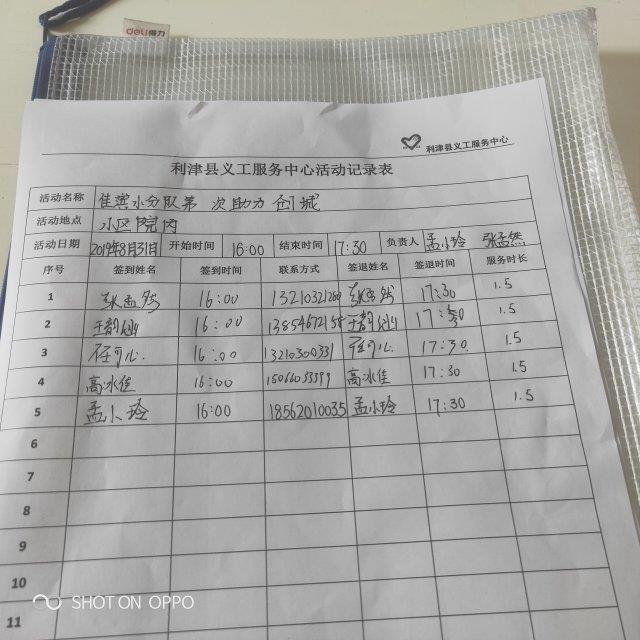 deli得力
利津县义工服务中心
利津县义工服务中心活动记录表
活动名称 佳滨小分队第 次助力创城
活动地点 小区院内
活动日期 2019年8月31日 开始时间 16:00 结束时间 17:30 负责人 孟小玲 张孟然
序号 签到姓名 签到时间 联系方式 签退姓名 签退时间 服务时长
1 16:00 13210321280 17:30 1.5
2 16:00 17:30 1.5
3 任可心 16:00 13210300331 任可心 17:30 1.5
4 高冰佳 16:00 15066033399 高冰佳 17:30 1.5
5 孟小玲 16:00 18562010035 孟小玲 17:30 1.5
6
7
8
9
10
11
SHOT ON OPPO